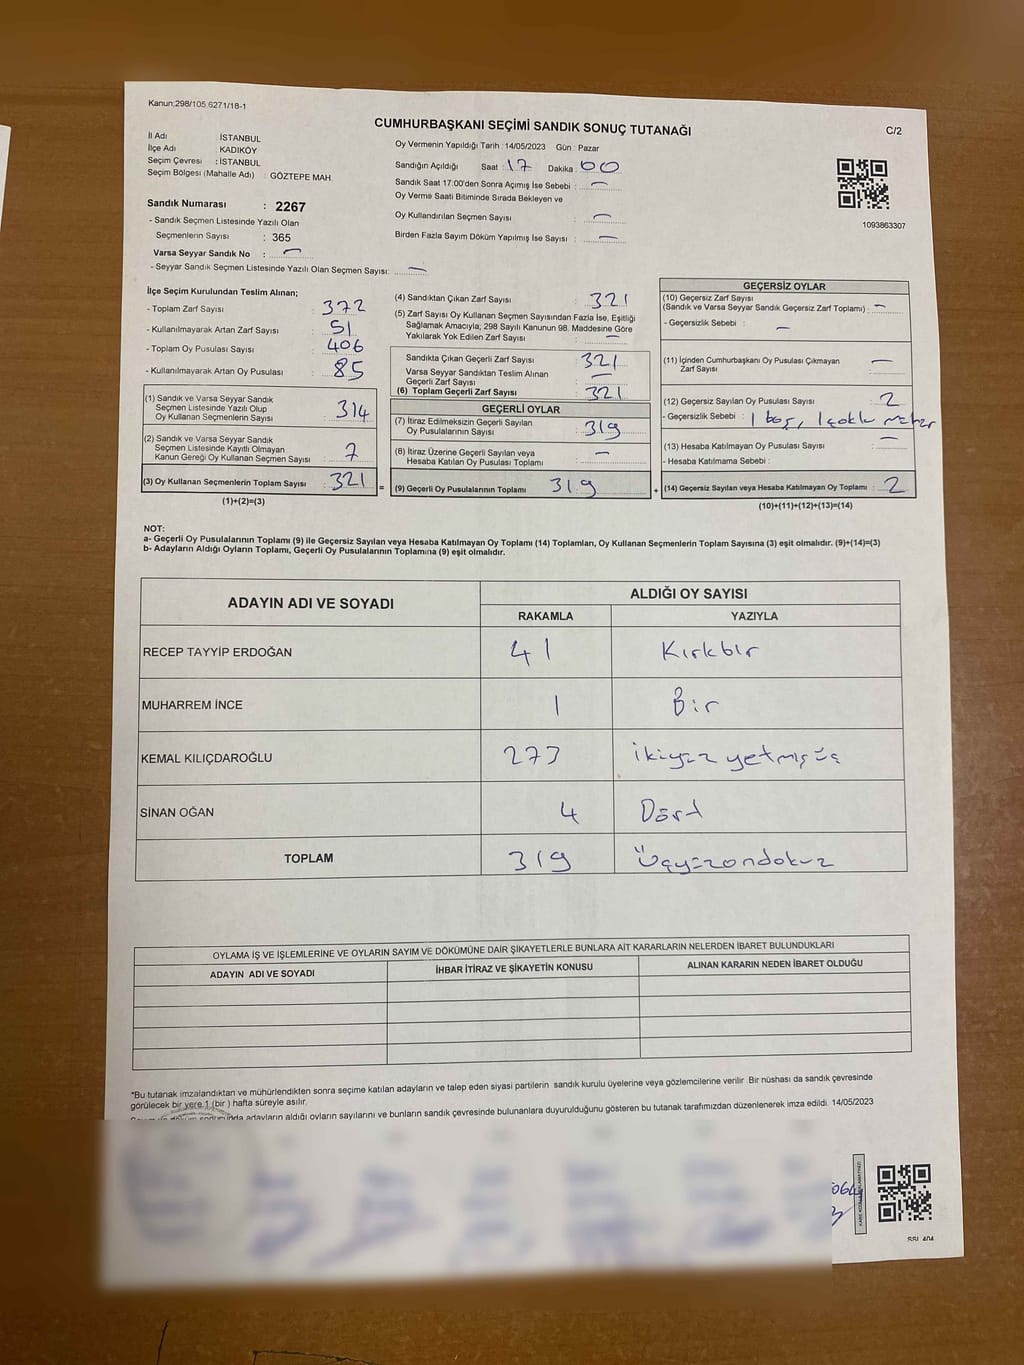 Kanun;298/105 6271/18-1
CUMHURBAŞKANI SEÇİMİ SANDIK SONUÇ TUTANAĞI
C/2
İl Adı : İSTANBUL
İlçe Adı : KADIKÖY
Seçim Çevresi : İSTANBUL
Seçim Bölgesi (Mahalle Adı) : GÖZTEPE MAH.
Oy Vermenin Yapıldığı Tarih : 14/05/2023 Gün : Pazar
Sandığın Açıldığı Saat : 17 Dakika : 00
Sandık Saat 17:00'den Sonra Açımış İse Sebebi : —
Oy Verme Saati Bitiminde Sırada Bekleyen ve
Oy Kullandırılan Seçmen Sayısı : —
Birden Fazla Sayım Döküm Yapılmış İse Sayısı : —
1093863307
Sandık Numarası : 2267
- Sandık Seçmen Listesinde Yazılı Olan
Seçmenlerin Sayısı : 365
Varsa Seyyar Sandık No : —
- Seyyar Sandık Seçmen Listesinde Yazılı Olan Seçmen Sayısı: —
İlçe Seçim Kurulundan Teslim Alınan;
- Toplam Zarf Sayısı : 372
- Kullanılmayarak Artan Zarf Sayısı : 51
- Toplam Oy Pusulası Sayısı : 406
- Kullanılmayarak Artan Oy Pusulası : 85
(1) Sandık ve Varsa Seyyar Sandık
Seçmen Listesinde Yazılı Olup
Oy Kullanan Seçmenlerin Sayısı : 314
(2) Sandık ve Varsa Seyyar Sandık
Seçmen Listesinde Kayıtlı Olmayan
Kanun Gereği Oy Kullanan Seçmen Sayısı : 7
(3) Oy Kullanan Seçmenlerin Toplam Sayısı : 321 =
(1)+(2)=(3)
(4) Sandıktan Çıkan Zarf Sayısı : 321
(5) Zarf Sayısı Oy Kullanan Seçmen Sayısından Fazla İse, Eşitliği
Sağlamak Amacıyla; 298 Sayılı Kanunun 98. Maddesine Göre
Yakılarak Yok Edilen Zarf Sayısı : —
Sandıkta Çıkan Geçerli Zarf Sayısı : 321
Varsa Seyyar Sandıktan Teslim Alınan
Geçerli Zarf Sayısı : —
(6) Toplam Geçerli Zarf Sayısı : 321
GEÇERLİ OYLAR
(7) İtiraz Edilmeksizin Geçerli Sayılan
Oy Pusulalarının Sayısı : 319
(8) İtiraz Üzerine Geçerli Sayılan veya
Hesaba Katılan Oy Pusulası Toplamı : —
(9) Geçerli Oy Pusulalarının Toplamı : 319 +
GEÇERSİZ OYLAR
(10) Geçersiz Zarf Sayısı
(Sandık ve Varsa Seyyar Sandık Geçersiz Zarf Toplamı) : —
- Geçersizlik Sebebi : —
(11) İçinden Cumhurbaşkanı Oy Pusulası Çıkmayan
Zarf Sayısı : —
(12) Geçersiz Sayılan Oy Pusulası Sayısı : 2
- Geçersizlik Sebebi : 1 boş, 1 çoklu mühür
(13) Hesaba Katılmayan Oy Pusulası Sayısı : —
- Hesaba Katılmama Sebebi :
(14) Geçersiz Sayılan veya Hesaba Katılmayan Oy Toplamı : 2
(10)+(11)+(12)+(13)=(14)
NOT:
a- Geçerli Oy Pusulalarının Toplamı (9) ile Geçersiz Sayılan veya Hesaba Katılmayan Oy Toplamı (14) Toplamları, Oy Kullanan Seçmenlerin Toplam Sayısına (3) eşit olmalıdır. (9)+(14)=(3)
b- Adayların Aldığı Oyların Toplamı, Geçerli Oy Pusulalarının Toplamına (9) eşit olmalıdır.
ADAYIN ADI VE SOYADI
ALDIĞI OY SAYISI
RAKAMLA YAZIYLA
RECEP TAYYİP ERDOĞAN 41 Kırkbir
MUHARREM İNCE 1 Bir
KEMAL KILIÇDAROĞLU 273 ikiyüz yetmişüç
SİNAN OĞAN 4 Dört
TOPLAM 319 Üçyüzondokuz
OYLAMA İŞ VE İŞLEMLERİNE VE OYLARIN SAYIM VE DÖKÜMÜNE DAİR ŞİKAYETLERLE BUNLARA AİT KARARLARIN NELERDEN İBARET BULUNDUKLARI
ADAYIN ADI VE SOYADI İHBAR İTİRAZ VE ŞİKAYETİN KONUSU ALINAN KARARIN NEDEN İBARET OLDUĞU
*Bu tutanak imzalandıktan ve mühürlendikten sonra seçime katılan adayların ve talep eden siyasi partilerin sandık kurulu üyelerine veya gözlemcilerine verilir .Bir nüshası da sandık çevresinde
görülecek bir yere 1 (bir ) hafta süreyle asılır.
adayların aldığı oyların sayılarını ve bunların sandık çevresinde bulunanlara duyurulduğunu gösteren bu tutanak tarafımızdan düzenlenerek imza edildi. 14/05/2023